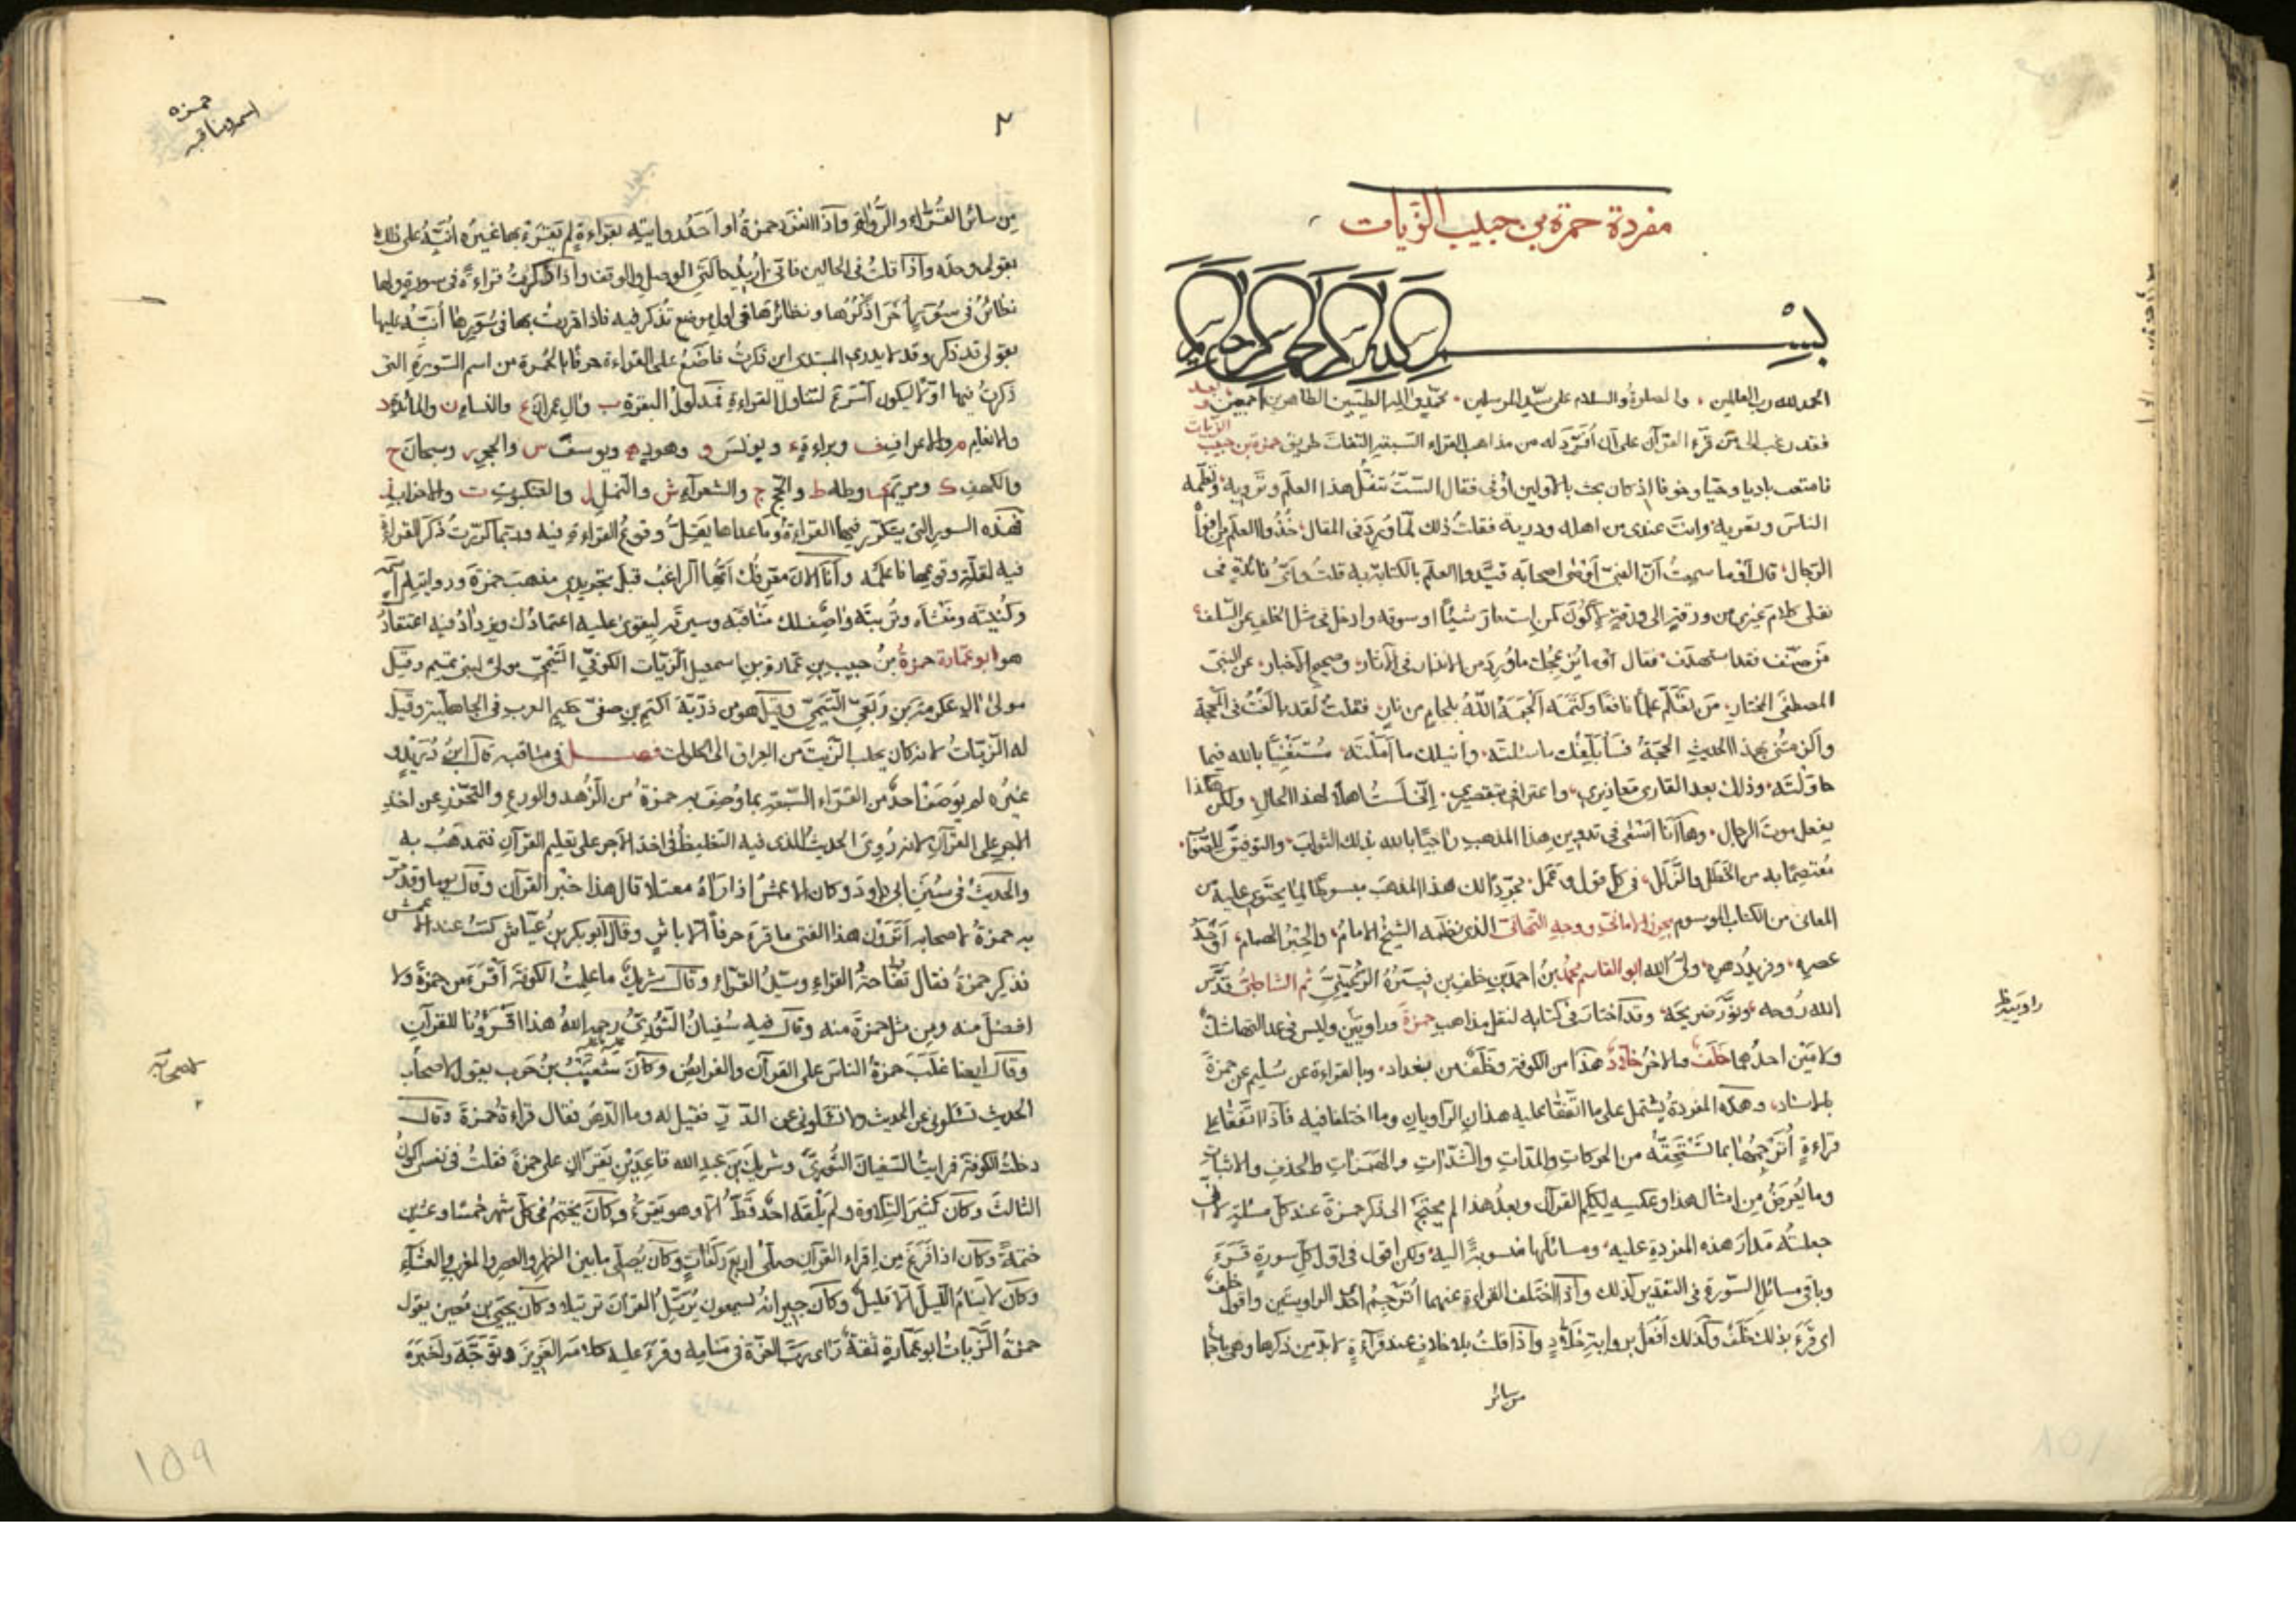 مفردة حمزة بن حبيب الزيات
بسم الله الرحمن الرحيم
الحمد لله رب العالمين والصلوة والسلام على سيد المرسلين محمد واله الطيبين الطاهرين اجمعين وبعد
فقد رغب الى من قرء القرآن على ان افرد له من مذاهب القراء السبعة الثقات طريق حمزة بن حبيب الزيات
الناس وتقريه وانت عندى من اهله ودربة فقلت ذلك لما ورد فى المقال خذوا العلم من افواه
الرجال قال أوما سمعت أن النبى أوصى اصحابه قيدوا العلم بالكتابة قلت وأى فائدة فى
نقلى كلام غيرى من ورقة الى ورقة لأكون كمن استعار شيئا او سرقه وادخل فى مثل الخلف عن السلف
من صنف فقد استهدف فقال أولم يزعجك ما ورد من الانذار فى الآثار وصحيح الاخبار عن النبى
المصطفى المختار من تعلم علما نافعا وكتمه الجمه الله بلجام من نار فقلت لقد بالغت فى الحجة
والزمتنى بهذا الحديث الحجة فسأبلغك ما سئلته وانيلك ما املته مستغنيا بالله فيما
حاولته وذلك بعد القارى معاذيرى واعترافى بتقصيرى إنى لست اهلا لهذا الحال ولكن هكذا
يفعل موت الرجال وها أنا اشفى فى تدوين هذا المذهب راجيا بالله بذلك الثواب والتوفيق للصواب
معتصما به من الخطل والزلل فى كل قول وعمل مجردا لك هذا المذهب مما يحتوى عليه من
المعانى من الكتاب الموسوم بحرز الامانى ووجه التهانى الذى نظمه الشيخ الامام والحبر الهمام اوحد
عصره وفريد دهره ولى الله ابو القاسم محمد بن احمد بن خلف بن فيره الرعينى ثم الشاطبى قدس
الله روحه ونور ضريحه وقد اختار فى كتابه لنقل مذاهب حمزة راويين
ولامين احدهما خلف والآخر خلاد هذا من الكوفة وخلف من بغداد وبالقراءة عن سليم عن حمزة
بالاسناد وهذه المفردة يشتمل على ما اتفقا عليه هذان الراويان وما اختلفا فيه فاذا اتفقا على
قراءة أترجمها بما تستحقه من الحركات والمدات والشدات والهمزات والحذف والاثبات
وما يعرض من امثال هذا وعكسه لكلم القرآن وبعد هذا لم يحتج الى ذكر حمزة عند كل مسئلة لأنى
جعلته مدار هذه المفردة عليه ومسائلها منسوبة اليه ولكن اقول فى اول كل سورة قرء
وباقى مسائل السورة فى التقدير كذلك واذا اختلف القراءة عنهما أترجم احد الراويتين واقول خلف
اى قرء بذلك خلف وكذلك أفعل برواية خلاد واذا قلت بلا خلاف عند قراءة لا بد من ذكرها وهى
من سائر
راويين
حمزة
اسم ومناقبه
٢
من سائر القراء والرواة واذا انفرد حمزة او احد روايتيه بقراءة لم يقرء بها غيره أنبه على ذلك
بقولى وحده واذا قلت فى الحالين فانى اريد حالتى الوصل والوقف واذا ذكرت قراءة فى سورة ولها
نظائر فى سور أخر اذكرها ونظائرها فى اول موضع تذكر فيه فاذا مررت بها فى سورها أنبه عليها
بقولى قد ذكر وقد لا يدرى المبتدى اين ذكرت فاضع على القراءة حرفا بالحمرة من اسم السورة التى
ذكرت فيها اولا ليكون اسرع لتناول القراءة فمدلول البقرة ب وآل عمران ع والنساء ن والمائدة د
والانعام م والاعراف ف وبراءة ء ويونس و وهود ه ويوسف س والحجر ر وسبحان ح
والكهف ك ومريم ى وطه ط والحج ج والشعراء ش والنمل ل والعنكبوت ت والاحزاب
فهذه السور التى يتكرر فيها القراءة وما عداها يقل وقوع القراءة فيه وربما كررت ذكر القراءة
فيه لقلة وقوعها فاعلمه وأنا الآن معرفك أيها الراغب قبل تجريدى مذهب حمزة وروايتيه اسمه
وكنيته ومنشأه وتربيته وأصف لك مناقبه وسيرته ليقوى عليه اعتمادك ويزداد فيه اعتقادك
هو ابو عمارة حمزة بن حبيب بن عمارة بن اسمعيل الزيات الكوفى التيمى مولى لبنى تميم وقيل
مولى آل عكرمة بن ربعى التيمى وقيل هو من ذرية اكثم بن صفى حكيم العرب فى الجاهلية وقيل
له الزيات لانه كان يجلب الزيت من العراق الى حلوان فصل فى مناقبه قال ابن دريد
غيره لم يوصف احد من القراء السبعة بما وصف به حمزة من الزهد والورع والتحرز عن اخذ
الاجر على القرآن لانه روى الحديث الذى فيه التغليظ فى اخذ الاجر على تعليم القرآن فتمذهب به
والحديث فى سنن ابى داود وكان الاعمش اذا رآه مقبلا قال هذا خبر القرآن وقال يوما وقد مر
به حمزة لاصحابه أترون هذا الفتى ما قرء حرفا الا باثر وقال ابو بكر بن عياش كنت عند الاعمش
فذكر حمزة فقال تفاحة القراء وسيد القراء وقال شريك ما علمت الكوفة أقرء من حمزة ولا
افضل منه ومن مثل حمزة منه وقال فيه سفيان الثورى رحمه الله هذا اقرؤنا للقرآن
وقال ايضا غلب حمزة الناس على القرآن والفرايض وكان شعيب بن حرب يقول لاصحاب
الحديث تسئلونى عن الحديث ولا تسئلونى عن الدر فقيل له وما الدر فقال قراءة حمزة وقال
دخلت الكوفة فرايت السفيان الثورى وشريك بن عبد الله قاعدين يقرآن على حمزة فقلت فى نفسى اكون
الثالث وكان كثير التلاوة ولم يلقه احد قط الا وهو يقرء وكان يختم فى كل شهر خمسا وعشرين
ختمة وكان اذا فرغ من اقراء القرآن صلى اربع ركعات وكان يصلى ما بين الظهر والعصر والمغرب والعشاء
وكان لا ينام الليل الا قليل وكان جيرانه يسمعونه يرتل القرآن ترتيلا وكان يحيى بن معين يقول
حمزة الزيات ابو عمارة ثقة رأى رب العزة فى منامه وقرء عليه كلامه العزيز وتوجه واخبره
١٥٩